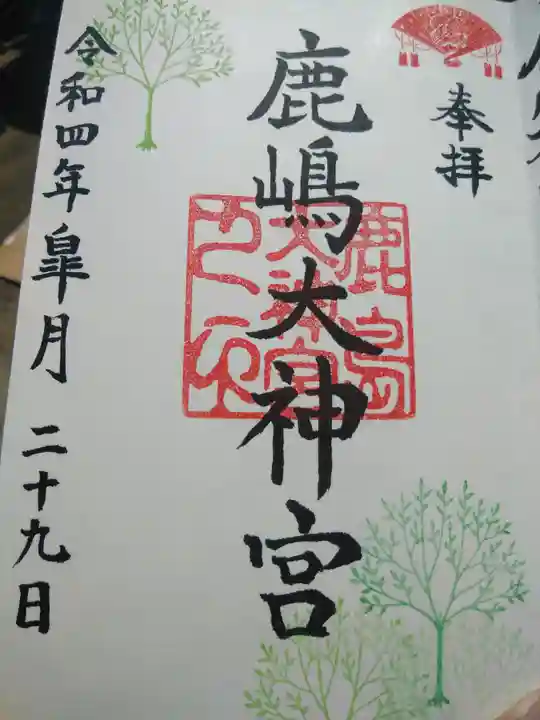 奉拝
鹿嶋大神宮
鹿島
大神宮
令和四年皐月 二十九日